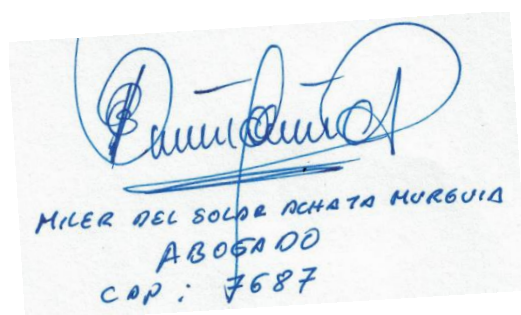 MILER DEL SOLAR ACHATA MURGUIA
ABOGADO
CAP: 7687